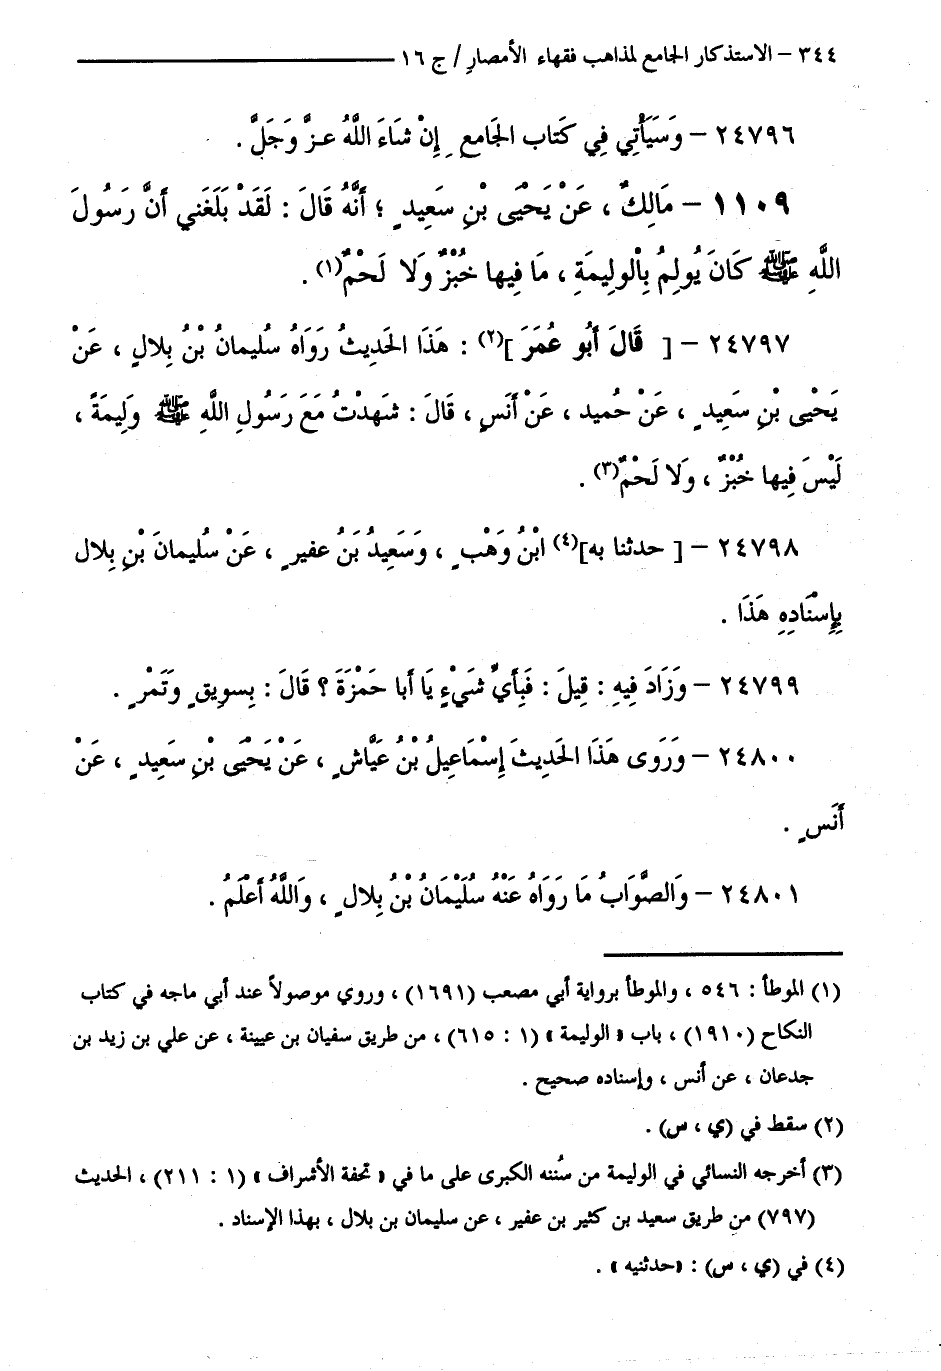 ٣٤٤ – الاستذكار الجامع لمذاهب فقهاء الأمصارِ / ج ١٦
٢٤٧٩٦ – وَسَيَأْتِي فِي كَتَابِ الجَامعِ إِنْ شَاءَ اللَّهُ عزَّ وَجَلَّ .
١١٠٩ – مَالِكٌ ، عَنْ يَحْيَى بْنِ سَعِيدٍ ؛ أَنَّهُ قَالَ : لَقَدْ بَلَغَنِي أَنَّ رَسُولَ
اللَّهِ ﷺ كَانَ يُولِمُ بِالْوَلِيمَةِ ، مَا فِيها خُبْزٌ وَلَا لَحْمٌ(١) .
٢٤٧٩٧ – [ قَالَ أَبُو عُمَرَ ](٢) : هَذَا الحَدِيثُ رَوَاهُ سُليمانُ بْنُ بِلالٍ ، عَنْ
يَحْيى بْنِ سَعِيدٍ ، عَنْ حُميد ، عَنْ أَنَسٍ ، قَالَ : شَهدْتُ مَعَ رَسُولِ اللَّهِ ﷺ وَلِيمَةً ،
لَيْسَ فِيها خُبْزٌ ، وَلَا لَحْمٌ(٣) .
٢٤٧٩٨ – [ حدثنا به](٤) ابْنُ وَهْبٍ ، وَسَعِيدُ بَنُ عفيرٍ ، عَنْ سُليمانَ بْنِ بِلال
بِإِسْنَادِهِ هَذَا .
٢٤٧٩٩ – وَزَادَ فِيهِ : قِيلَ : فَبِأَيِّ شَيْءٍ يَا أَبا حَمْزَةَ ؟ قَالَ : بِسويقٍ وَتَمْرٍ .
٢٤٨٠٠ – وَرَوَى هَذَا الحَدِيثَ إِسْمَاعِيلُ بْنُ عَيَّاشٍ ، عَنْ يَحْيَى بْنِ سَعِيدٍ ، عَنْ
أَنَسٍ .
٢٤٨٠١ – وَالصَّوَابُ مَا رَوَاهُ عَنْهُ سُلَيْمَانُ بْنُ بِلَالٍ ، وَاللَّهُ أَعْلَمُ .
(١) الموطأ : ٥٤٦ ، والموطأ برواية أبي مصعب (١٦٩١) ، وروي موصولاً عند أبي ماجه في كتاب
النكاح (١٩١٠) ، باب « الوليمة » (١ : ٦١٥) ، من طريق سفيان بن عيينة ، عن علي بن زيد بن
جدعان ، عن أنس ، وإسناده صحيح .
(٢) سقط في (ي ، س) .
(٣) أخرجه النسائي في الوليمة من سُننه الكبرى على ما في « تحفة الأشراف » (١ : ٢١١) ، الحديث
(٧٩٧) من طريق سعيد بن كثير بن عفير ، عن سليمان بن بلال ، بهذا الإسناد .
(٤) في (ي ، س) : «حدثنيه » .